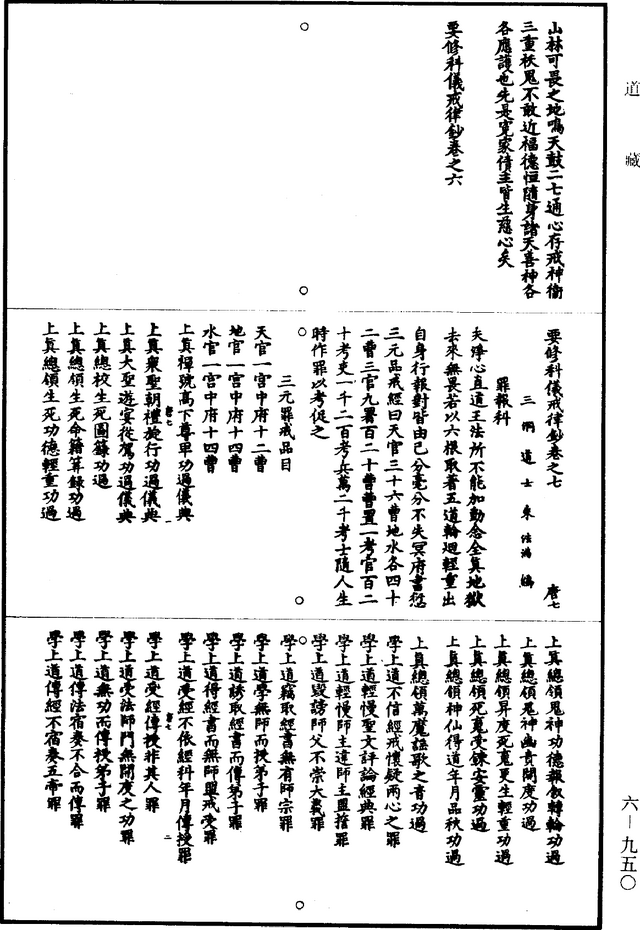 道藏
山林可畏之地鳴天鼓二七通心存戒神衞
三重袄鬼不敢近福德恒隨身諸天善神各
各應護也先是寃家債主皆生慈心矣
要修科儀戒律鈔卷之六
要修科儀戒律鈔卷之七
唐七
三洞道士朱法滿編
罪報科
夫淨心直道王法所不能加勤念全真地獄
去來無畏若以六根取著五道輪迴輕重出
自身行報對皆由己分毫分不失冥府書愆
三元品戒經曰天官三十六曹地水各四十
二曹三官九署百二十曹曹置一考官百二
十考吏一千二百考兵萬二千考士隨人生
時作罪以考促之
三元罪戒品目
天官一宮中府十二曹
地官一宮中府十四曹
水官一宮中府十四曹
上真禪號高下尊卑功過儀典
上真衆聖朝禮旋行功過儀典
唐七
一
上真大聖遊宴從駕功過儀典
上真總校生死圖籙功過
上真總領生死命籍筭錄功過
上真總領生死功德輕重功過
上真總領鬼神功德報敘轉輪功過
上真總領鬼神幽責開度功過
上真總領昇度死䰟更生輕重功過
上真總領死䰟受鍊安靈功過
上真總領神仙得道年月品秩功過
上真總領萬魔謡歌之音功過
學上道不信經戒懷疑兩心之罪
學上道輕慢聖文評論經典罪
學上道輕慢師主違師主盟誓罪
學上道毀謗師父不崇大義罪
學上道竊取經書無有師宗罪
學上道學無師而授弟子罪
學上道謗取經書而傳弟子罪
學上道得經書而無師盟戒受罪
學上道受經不依經科年月傳授罪
唐七
二
學上道受經傳授非其人罪
學上道受法師門無開度之功罪
學上道無功而傳授弟子罪
學上道傳法宿奏不合而傳罪
學上道傳經不宿奏五帝罪
六—九五〇